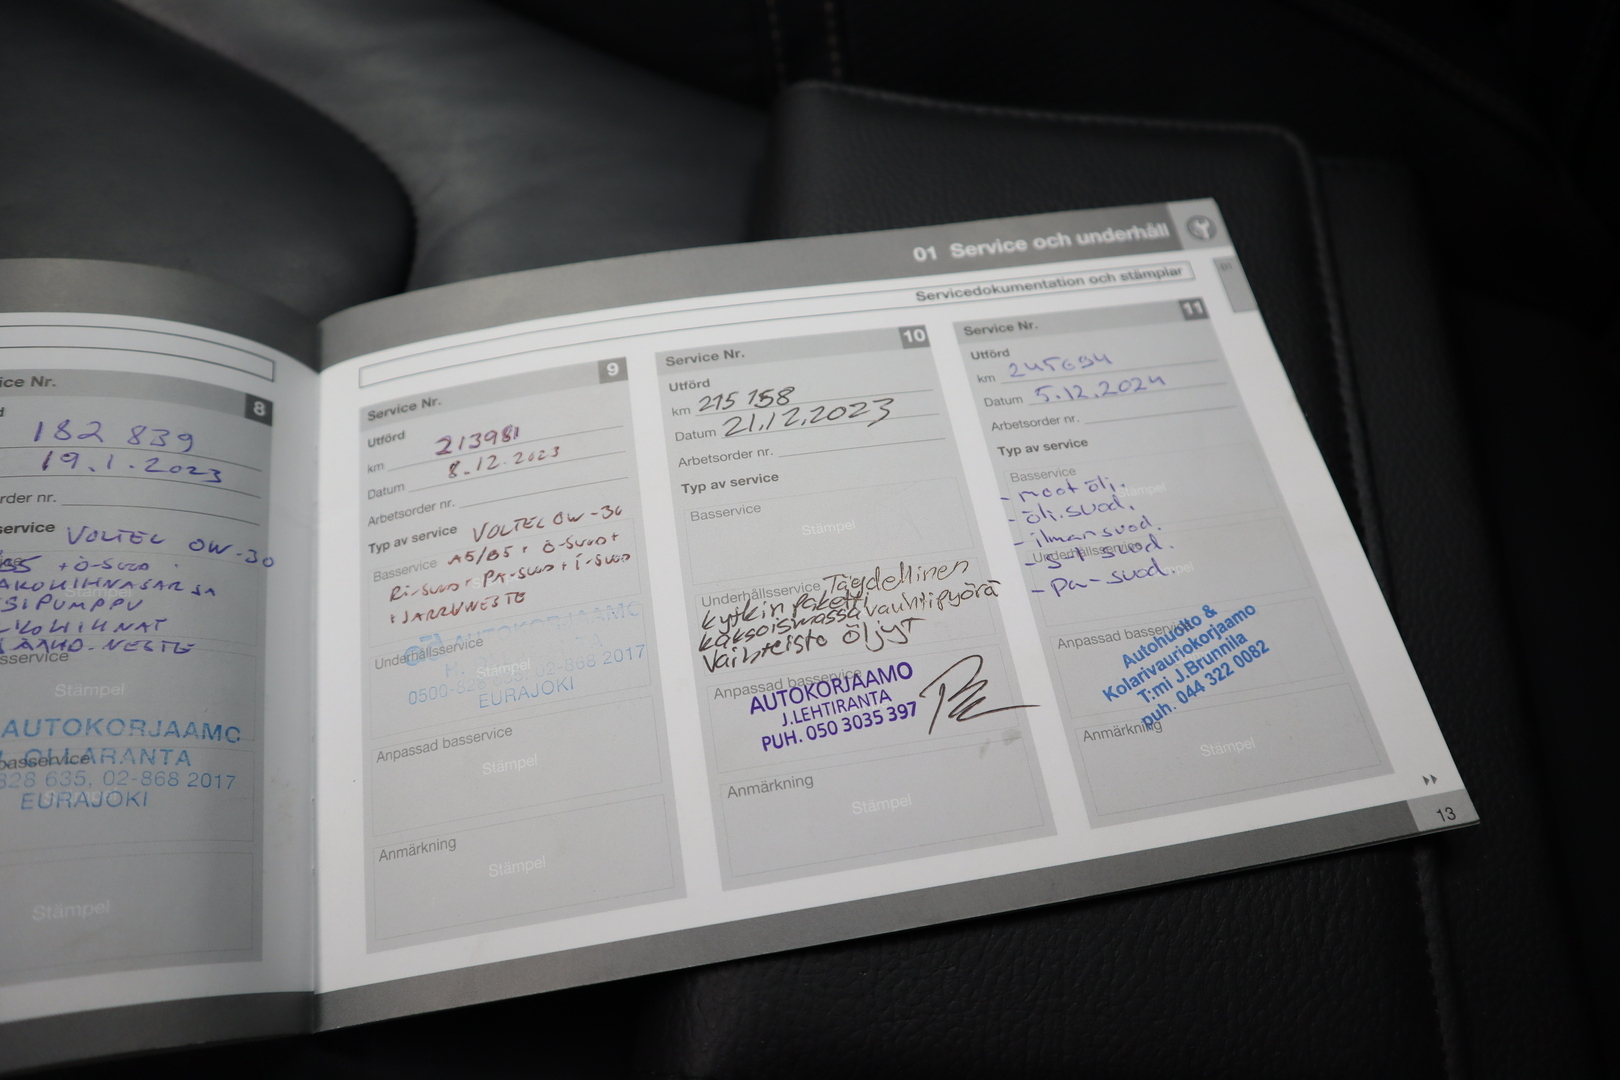 ice Nr. 8
182 839
19.1.2023
rder nr.
service VOLTEL 0W-30
+ Ö-SUOD.
SIPUMPPU
Stämpel
AUTOKORJAAMO
828 635, 02-868 2017
EURAJOKI
Stämpel
01 Service och underhåll
Servicedokumentation och stämplar
01
Service Nr. 9
Utförd
km 213981
Datum 8.12.2023
Arbetsorder nr.
Typ av service VOLTEL 0W-30
Basservice A5/B5+ Ö-SUOD+
RI-SUOD+ PA-SUOD+I-SUOD
+JARRUNESTE
AUTOKORJAAMO
Underhållsservice
Stämpel
02-868 2017
EURAJOKI
Anpassad basservice
Stämpel
Anmärkning
Stämpel
Service Nr. 10
Utförd
km 215 158
Datum 21.12.2023
Arbetsorder nr.
Typ av service
Basservice
Stämpel
Underhållsservice Täydellinen
kytkin paketti
kaksoismassavauhtipyörä
Vaihteisto öljyt
Anpassad basservice
AUTOKORJAAMO
J.LEHTIRANTA
PUH. 050 3035 397
Anmärkning
Stämpel
Service Nr. 11
Utförd
km 245694
Datum 5.12.2024
Arbetsorder nr.
Typ av service
Basservice
Stämpel
- moot öli.
- öli.suod.
- ilmansuod.
Underhållsservice
- pa-suod.
Anpassad basservice
Autohuolto &
Kolarivauriokorjaamo
T:mi J.Brunnila
puh. 044 322 0082
Anmärkning
Stämpel
13